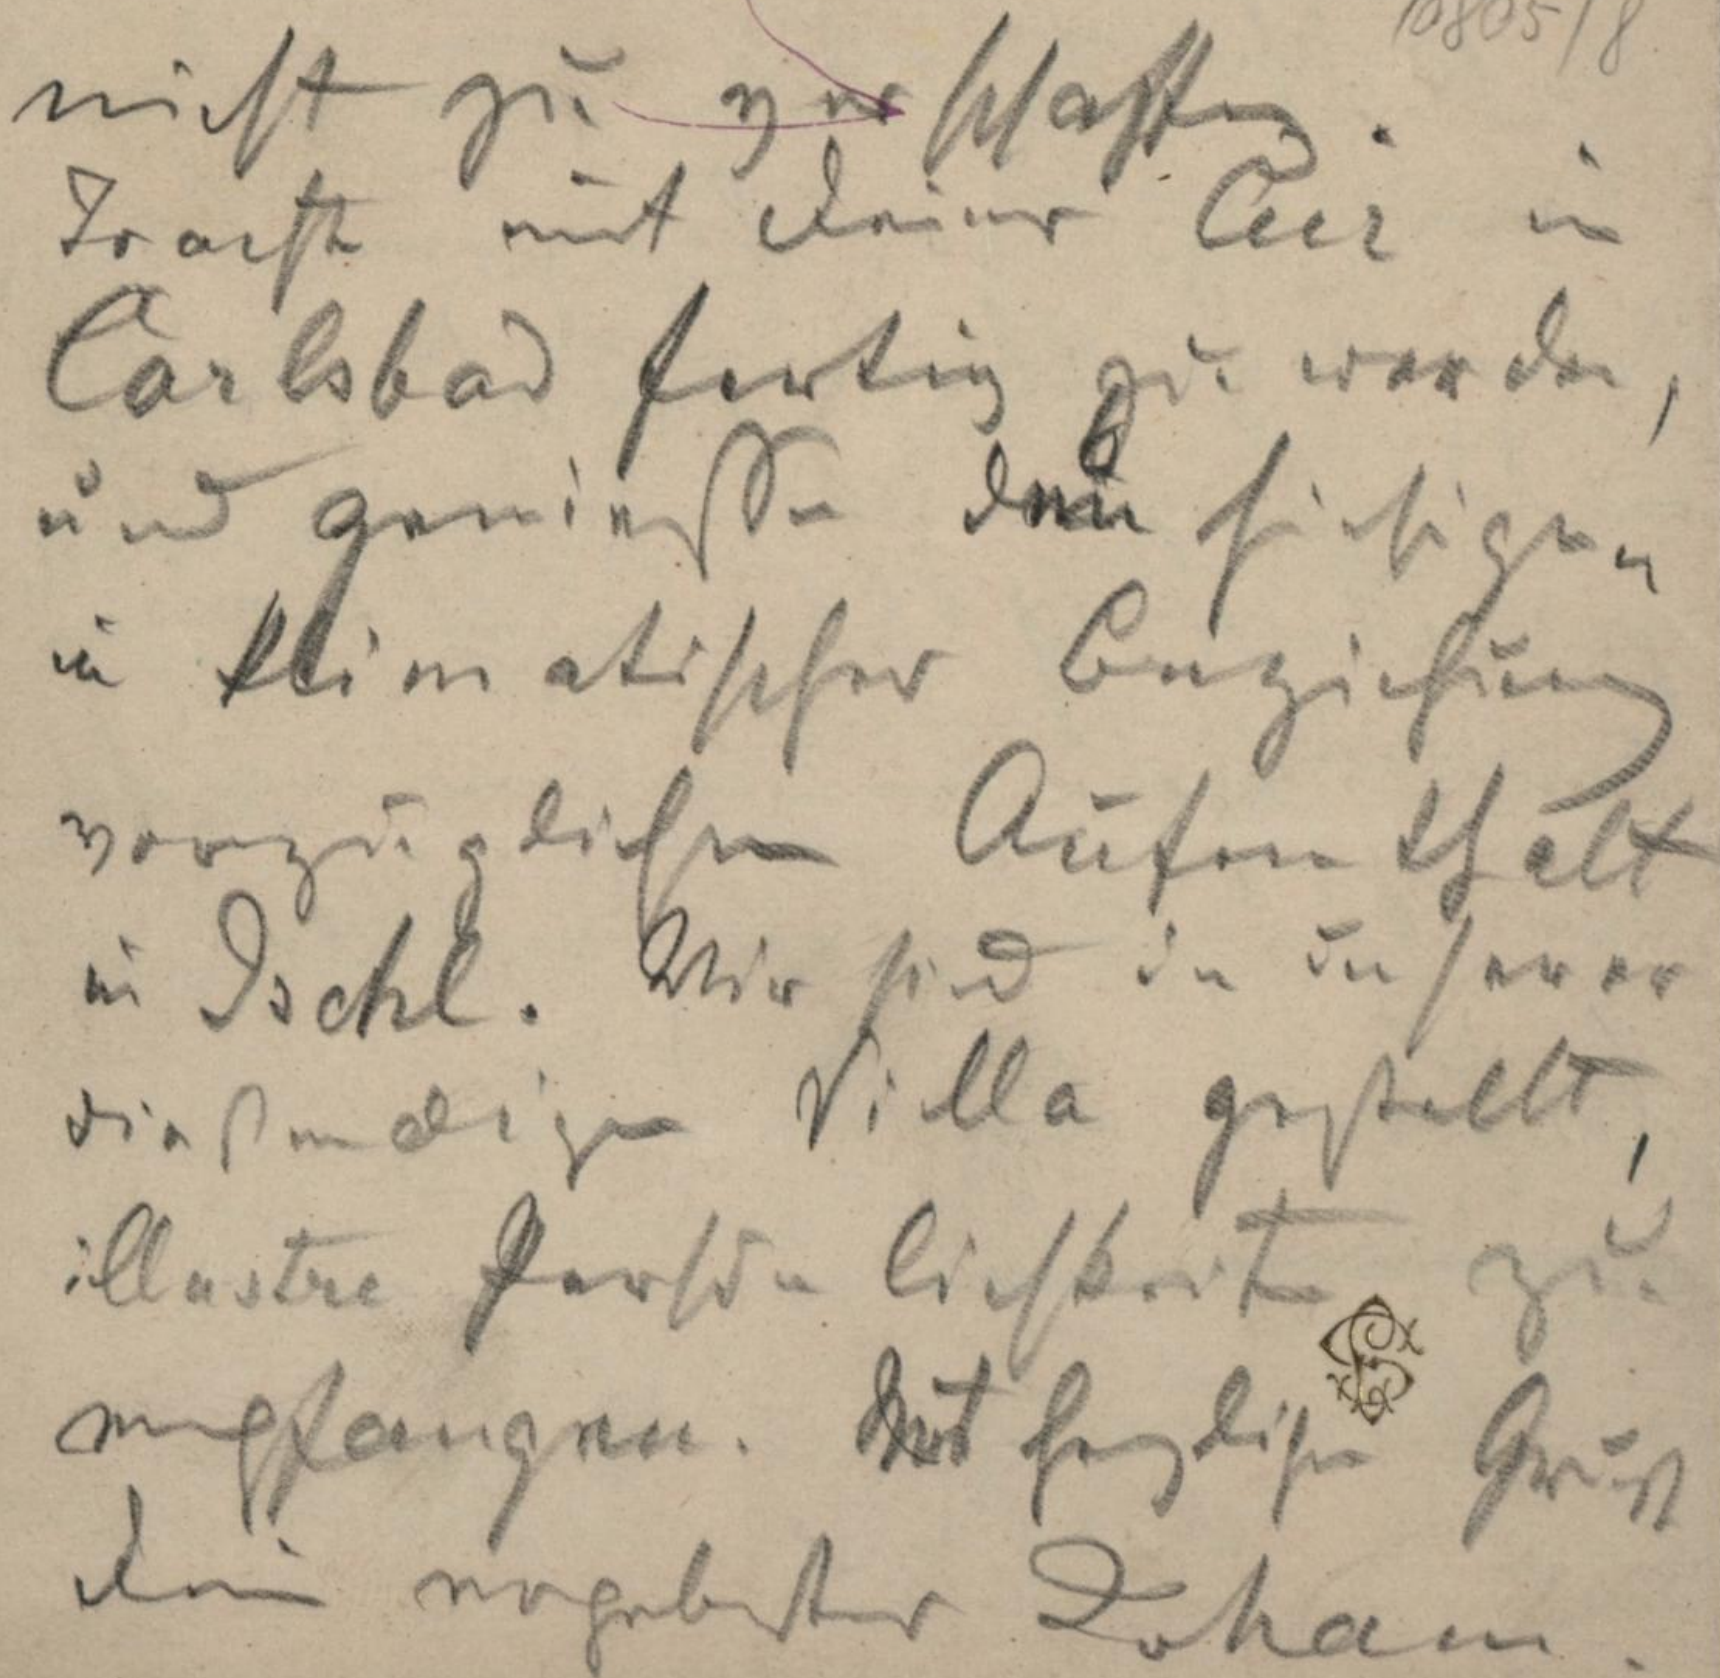 10805/8
nicht zu verschlafen.
Trachte mit Deiner Cur in
Carlsbad fertig zu werden,
und genieße den hiesigen
in klimatischer Beziehung
vorzüglichen Aufenthalt
in Ischl. Wir sind in unserer
Villa gestellt,
illustre Persönlichkeiten zu
empfangen. Mit herzlichem Gruß
Dein ergebenster Johann.